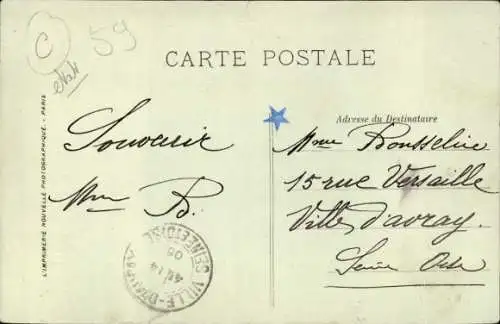 C
59
état
CARTE POSTALE
Adresse du Destinataire
Souvenir
Mme B.
Mme Bousseline
15 rue Versaille
Ville d'avray
Seine Oise
L'IMPRIMERIE NOUVELLE PHOTOGRAPHIQUE - PARIS
VILLE-D'AVRAY
SEINE ET OISE